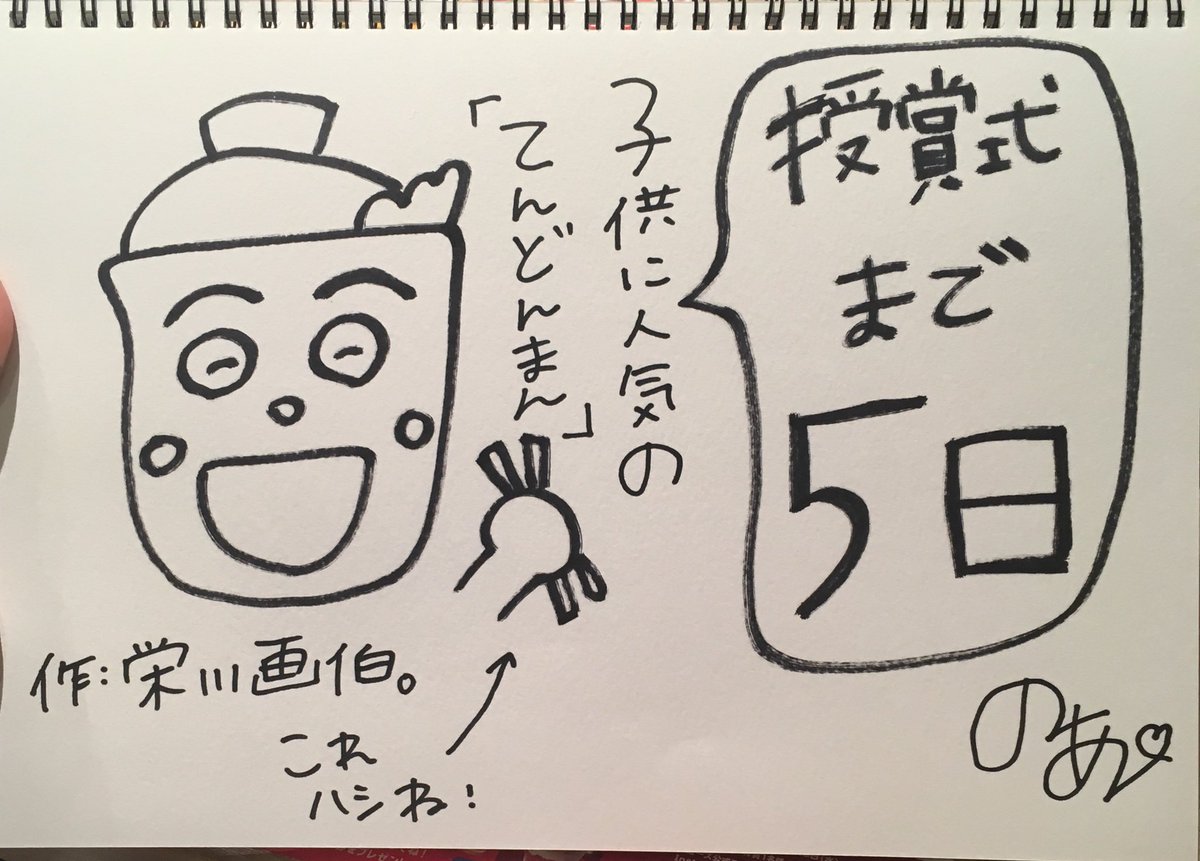 授賞式
まで
5日
子供に人気の
「てんどんまん」
作:栄川画伯。
これ
ハシね!
のあ♡